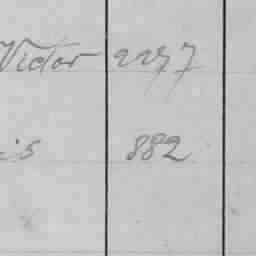 Victor 2277
is 882